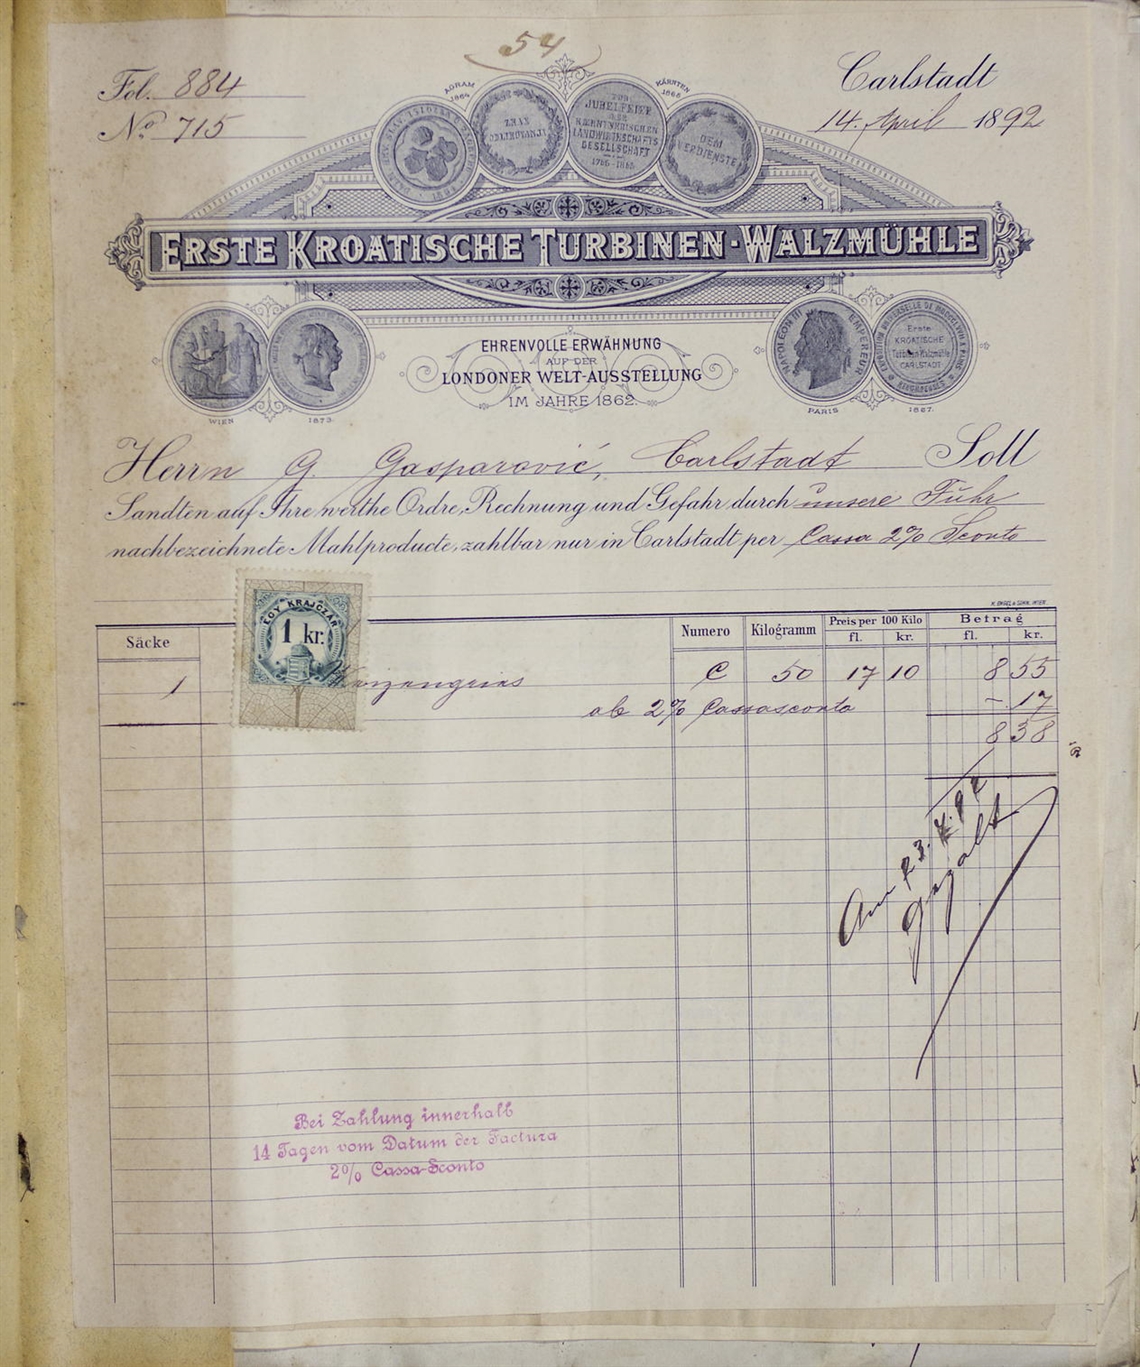 54
Fol. 884
Carlstadt
No 715
14. April 1892
AGRAM 1864
KÄRNTEN 1865
ZUR
JUBELFEIER
DER
KÄRNTNERISCHEN
LANDWIRTSCHAFTS
GESELLSCHAFT
1765-1865
DEM
VERDIENSTE
ERSTE KROATISCHE TURBINEN-WALZMÜHLE
EHRENVOLLE ERWÄHNUNG
AUF DER
LONDONER WELT-AUSSTELLUNG
IM JAHRE 1862.
NAPOLEON III EMPEREUR
Erste
KROATISCHE
Turbinen Walzmühle
CARLSTADT
WIEN 1873.
PARIS 1867.
Herrn G. Gasparović, Carlstadt Soll
Sandten auf Ihre werthe Ordre, Rechnung und Gefahr durch unsere Fuhr
nachbezeichnete Mahlproducte, zahlbar nur in Carlstadt per Cassa 2% Sconto
EGY KRAJCZÁR
1 kr.
Säcke Numero Kilogramm Preis per 100 Kilo Betrag
fl. kr. fl. kr.
1 Weizengries C 50 17 10 8 55
ab 2% Cassasconto - 17
8 38
Am 23. 4. 92
Gezalt
Bei Zahlung innerhalb
14 Tagen vom Datum der Factura
2% Cassa-Sconto